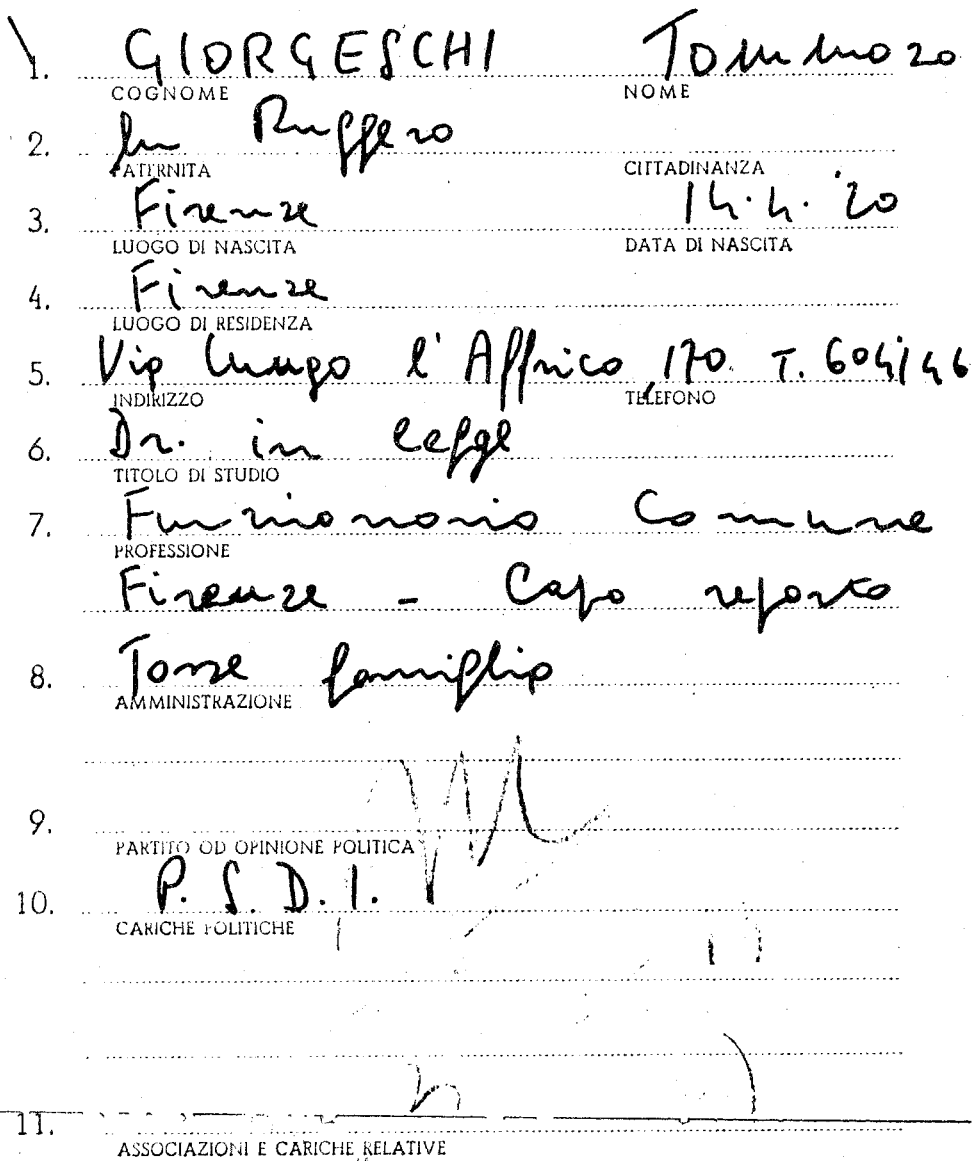 1. GIORGESCHI Tommaso
COGNOME NOME
2. fu Ruggero
PATERNITA CITTADINANZA
3. Firenze 14.4.'20
LUOGO DI NASCITA DATA DI NASCITA
4. Firenze
LUOGO DI RESIDENZA
5. Via lungo l'Affrico 170. T. 604146
INDIRIZZO TELEFONO
6. Dr. in legge
TITOLO DI STUDIO
7. Funzionario Comune
PROFESSIONE
Firenze - Capo reparto
8. Tasse famiglia
AMMINISTRAZIONE
9.
PARTITO OD OPINIONE POLITICA
10. P.S.D.I.
CARICHE POLITICHE
11.
ASSOCIAZIONI E CARICHE RELATIVE